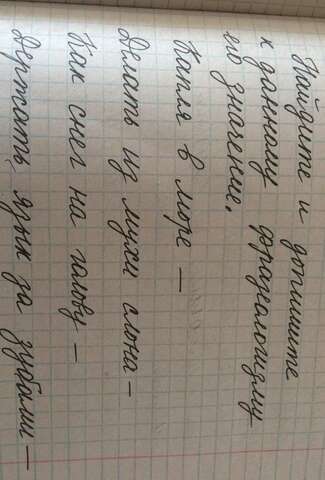 Найдите и допишите
к данному фразеологизму
его значение.
Капля в море —
Делать из мухи слона –
Как снег на голову –
Держать язык за зубами —